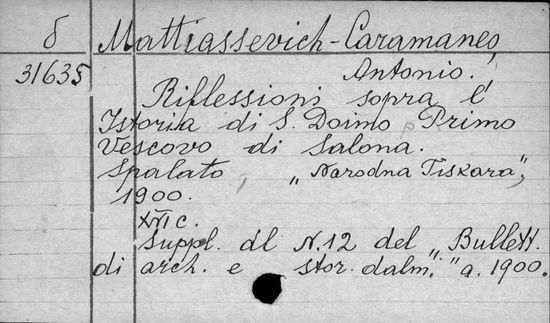 δ Mattiassevich-Caramaneo,
31635 Antonio.
Riflessioni sopra l'
Istoria di S. Doimo Primo
Vescovo di Salona.
Spalato, „Narodna Tiskara",
1900.
XVI c.
Suppl. al N. 12 del „Bullett.
di arch. e stor. dalm." a. 1900.